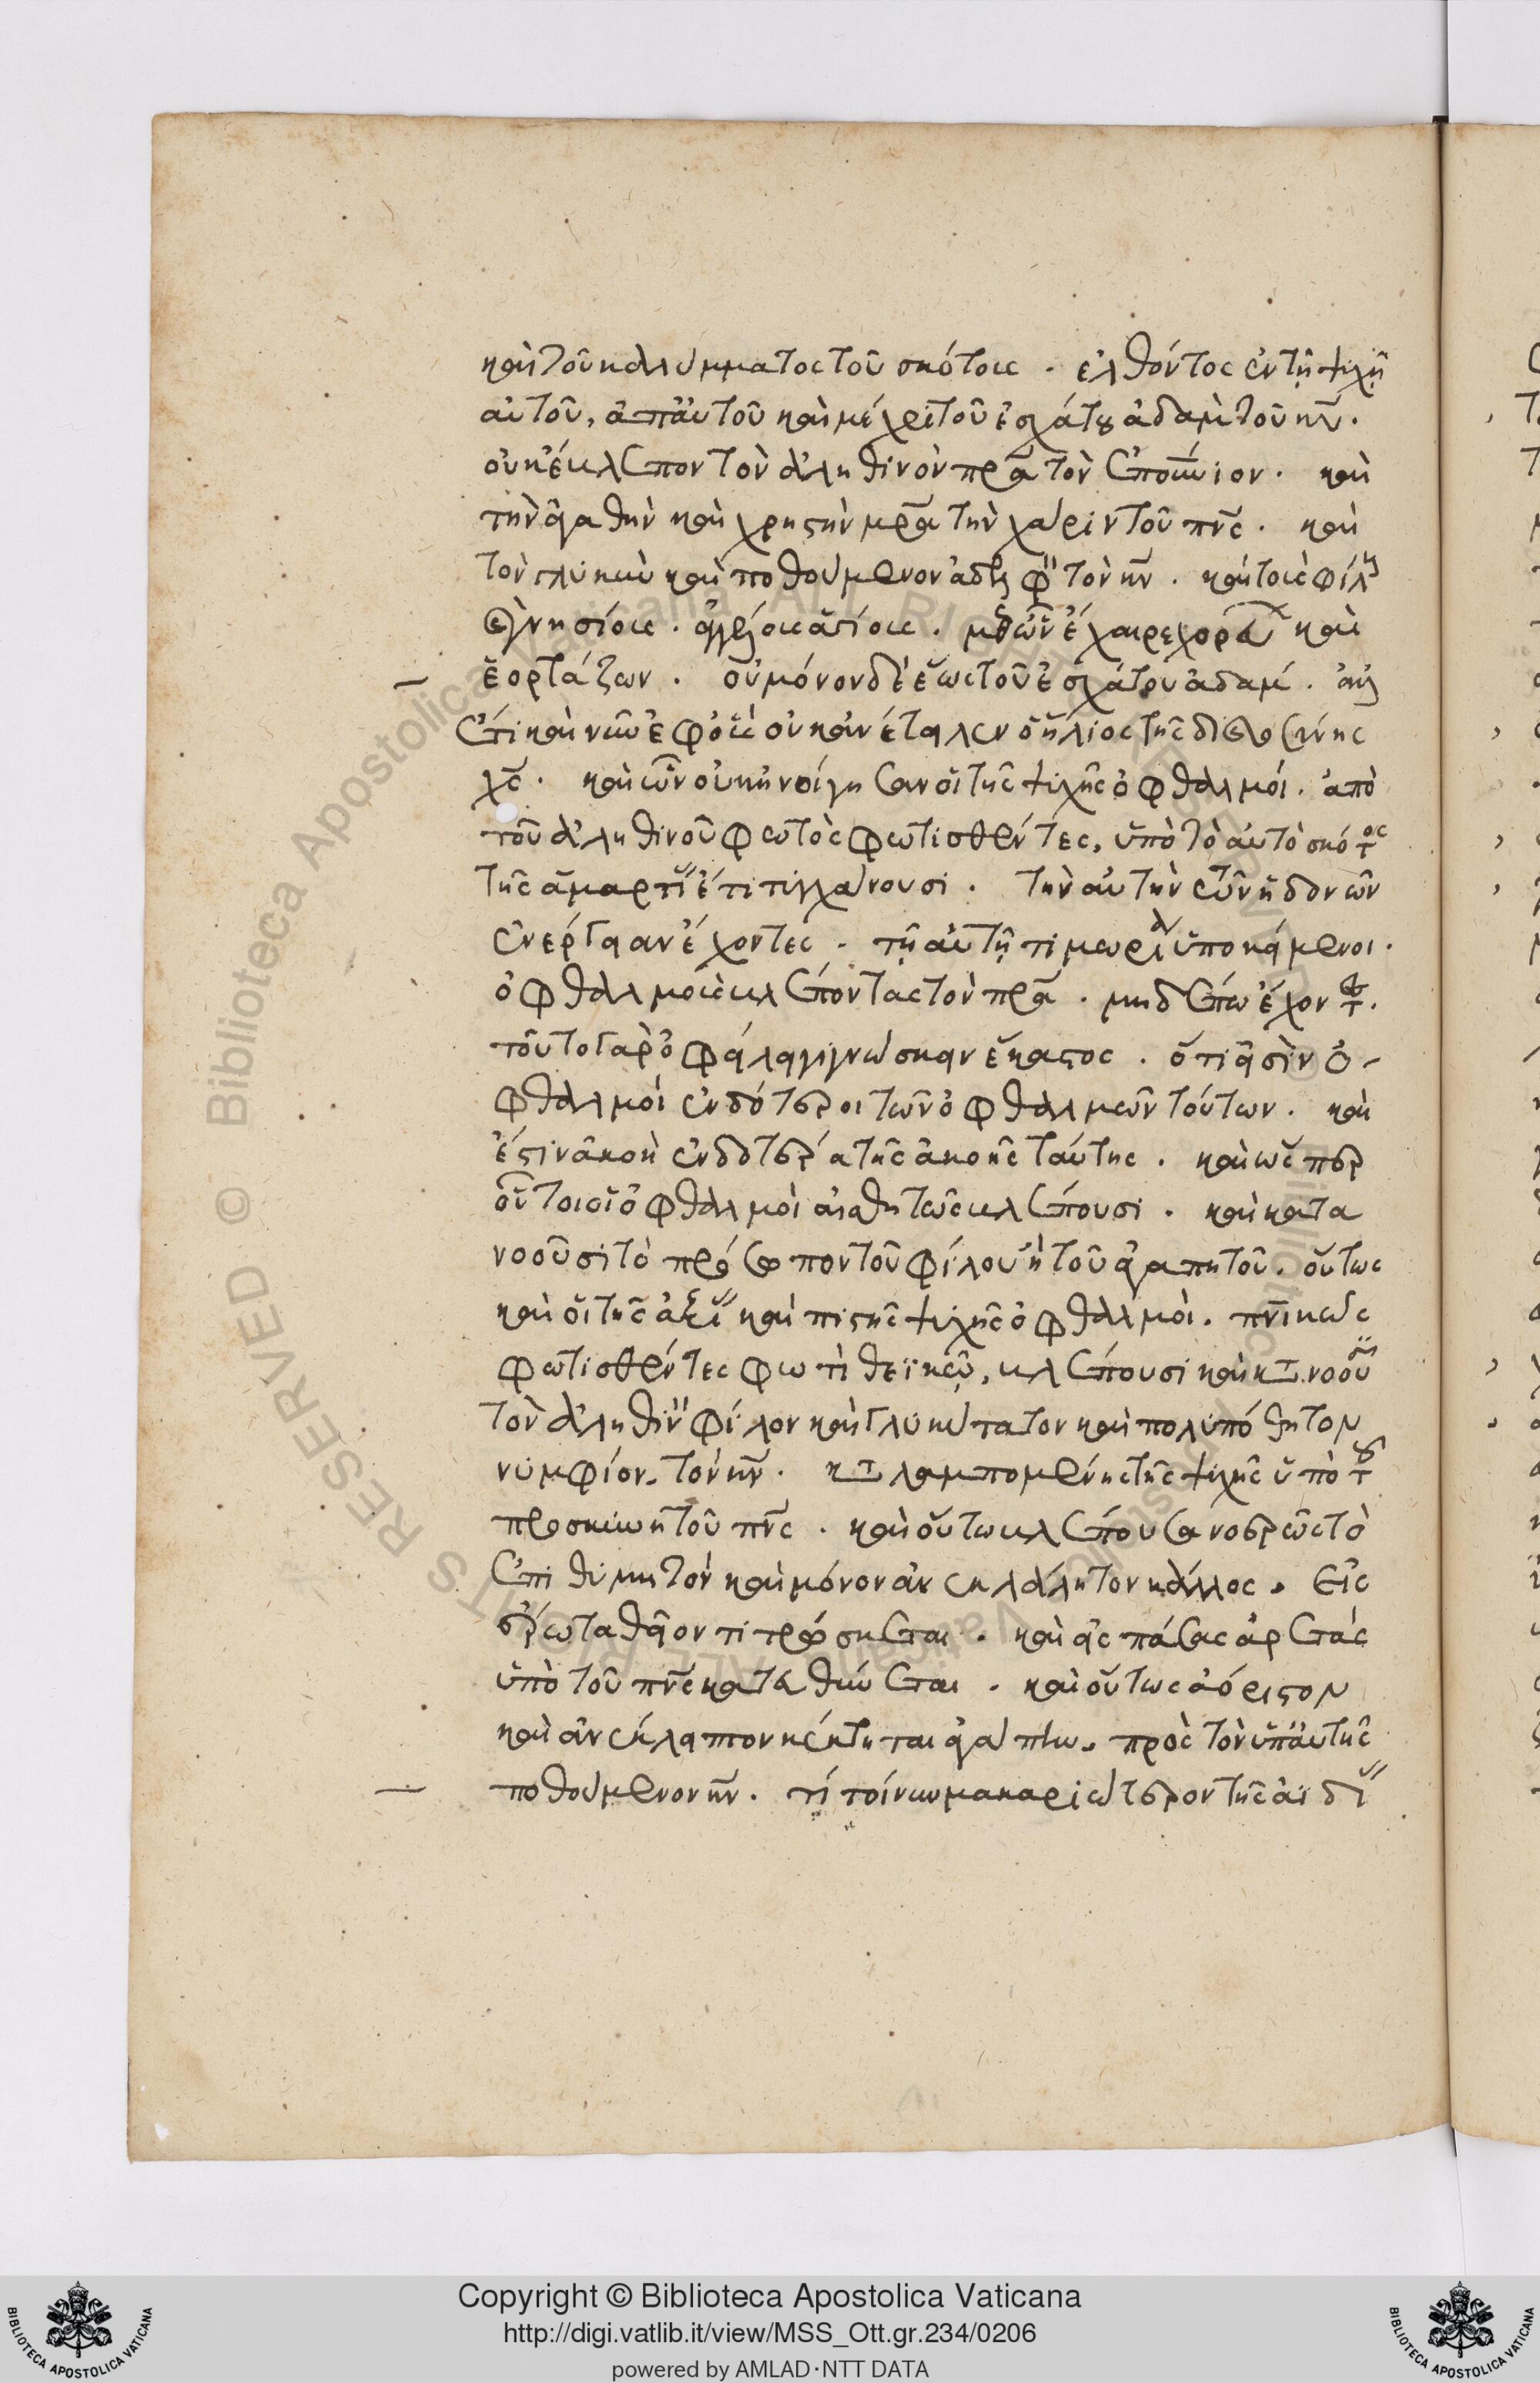 καὶ τοῦ καλύμματος τοῦ σκότους · ἐλθόντος ἐν τῇ ψυχῇ
αὐτοῦ, ἀπ' αὐτοῦ καὶ μέχρι τοῦ ἐσχάτου ἀδὰμ τοῦ κ̅υ̅.
οὐκ ἔβλεπον τὸν ἀληθινὸν π̅ρ̅α̅ τὸν ἐπουν̅ιον · καὶ
τὴν ἀγαθὴν καὶ χρηστὴν μ̅ρ̅α̅ τὴν χάριν τοῦ π̅ν̅ς̅ · καὶ
τὸν γλυκὺν καὶ ποθούμενον ἀδελφὸν τὸν κ̅ν̅ · καὶ τοὺς φίλους
γνησίους · ἀγγέλους ἁγίους · μεθ' ὧν ἔχαιρε χορεύων καὶ
ἑορτάζων · οὐ μόνον δὲ ἕως τοῦ ἐσχάτου ἀδάμ · ἀλλ'
ἔτι καὶ νῦν ἐφ' οἷς οὐκ ἀνέτειλεν ὁ ἥλιος τῆς δικαιοσύνης
χ̅ς̅ · καὶ ὧν οὐκ ἠνοίγησαν οἱ τῆς ψυχῆς ὀφθαλμοί · ἀπὸ
τοῦ ἀληθινοῦ φωτὸς φωτισθέντες, ὑπὸ τὸ αὐτὸ σκότος
τῆς ἁμαρτίας ἔτι τυγχάνουσι · τὴν αὐτὴν τῶν ἡδονῶν
ἐνέργειαν ἔχοντες · τῇ αὐτῇ τιμωρίᾳ ὑποκείμενοι ·
ὀφθαλμοὺς βλέποντας τὸν π̅ρ̅α̅ · μηδέπω ἔχοντες ·
τοῦτο γὰρ ὀφείλει γιγνώσκειν ἕκαστος · ὅτι εἰσὶν ὀ-
φθαλμοὶ ἐνδότεροι τῶν ὀφθαλμῶν τούτων · καὶ
ἔστιν ἀκοὴ ἐνδοτέρα τῆς ἀκοῆς ταύτης · καὶ ὥσπερ
οὗτοι οἱ ὀφθαλμοὶ αἰσθητῶς βλέπουσι · καὶ κατα
νοοῦσι τὸ πρόσωπον τοῦ φίλου ἢ τοῦ ἀγαπητοῦ · οὕτως
καὶ οἱ τῆς ἀξίας καὶ πιστῆς ψυχῆς ὀφθαλμοί · π̅ν̅ικῶς
φωτισθέντες φωτὶ θεϊκῷ, βλέπουσι καὶ κατανοοῦσι
τὸν ἀληθινὸν φίλον καὶ γλυκύτατον καὶ πολυπόθητον
νυμφίον, τὸν κ̅ν̅ · καταλαμπομένης τῆς ψυχῆς ὑπὸ τοῦ
προσκυνητοῦ π̅ν̅ς̅ · καὶ οὕτω βλέπουσα νοερῶς τὸ
ἐπιθυμητὸν καὶ μόνον ἀνεκλάλητον κάλλος · εἰς
ἔρωτα θεῖον τιτρώσκεται · καὶ εἰς πάσας ἀρετὰς
ὑπὸ τοῦ π̅ν̅ς̅ κατευθύνεται · καὶ οὕτως ἀόριστον
καὶ ἀνέκλειπτον κέκτηται ἀγάπην · πρὸς τὸν ὑπ' αὐτῆς
ποθούμενον κ̅ν̅ · τί τοίνυν μακαριώτερον τῆς ἀϊδίου